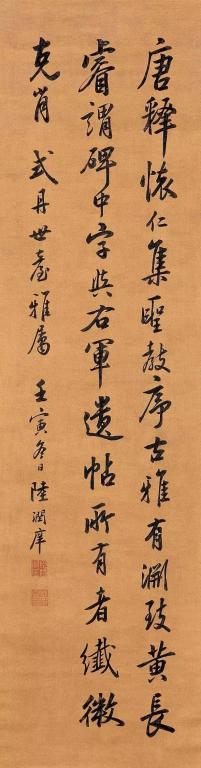 唐釋懷仁集聖教序古雅有淵致黃長
睿謂碑中字與右軍遺帖所有者纖微
克肖 式丹世臺雅屬 壬寅冬日 陸潤庠